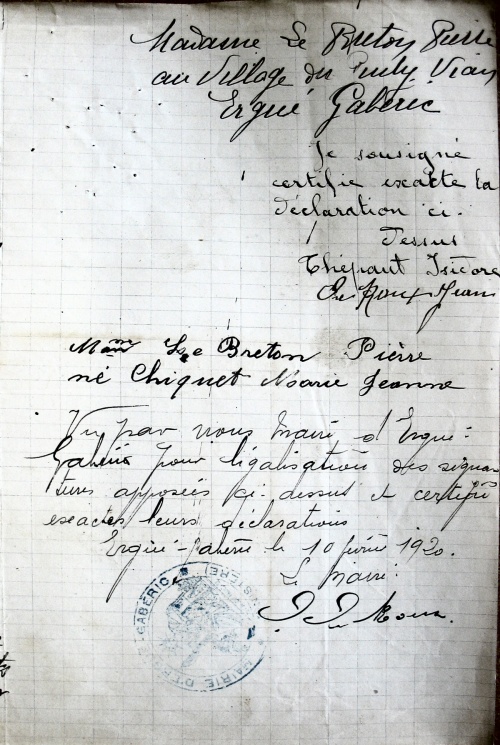 Madame Le Breton Pierre
au village du Vian
Ergué Gabéric
Je sousigné
certifie exacte la
déclaration ci.
Dessus
Thépaut Isidore
Le Roux Jean
Mme Le Breton Pierre
né Chiquet Marie Jeanne
Vu par nous Maire d'Ergué-
Gabéric pour légalisation des signa
tures apposées ci dessus et certifiés
exactes leurs déclarations
Ergué-Gabéric le 10 février 1920.
Le Maire.
Le Roux
MAIRIE D'ERGUÉ-GABÉRIC (FINISTÈRE)